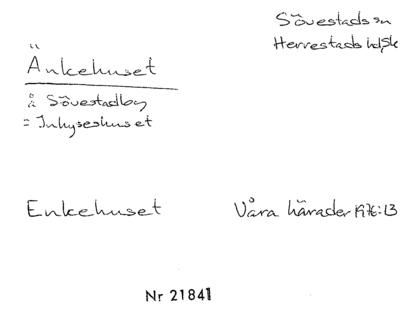 Sövestads sn
Herrestads hd, Sk
Änkehuset
å Sövestadby
= Inhyseshuset
Enkehuset Våra härader 1976:13
Nr 21841